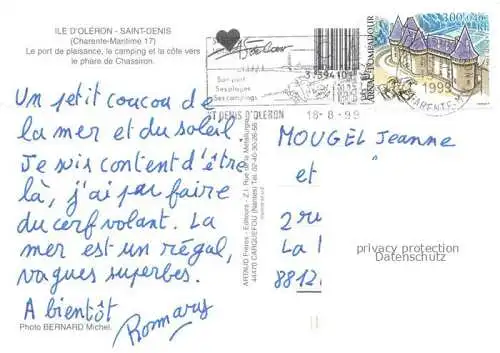 ILE D'OLÉRON - SAINT-DENIS
(Charente-Maritime 17)
Le port de plaisance, le camping et la côte vers
le phare de Chassiron.
Un petit coucou de
la mer et du soleil.
Je suis content d'être
là, j'ai pu faire
du cerf volant. La
mer est un régal,
vagues superbes.
A bientôt
Romary
Photo BERNARD Michel.
ARTAUD Frères - Editeurs - Z.I. Rue de la Métallurgie
44470 CARQUEFOU (Nantes) Tél. 02-40-30-26-56
Son port
Ses plages
Ses campings
ST DENIS D'OLERON
18-8-99
3,00 0,46€
POMPADOUR
1999
MOUGEL Jeanne
et "
2 rue
La
8812
privacy protection
Datenschutz